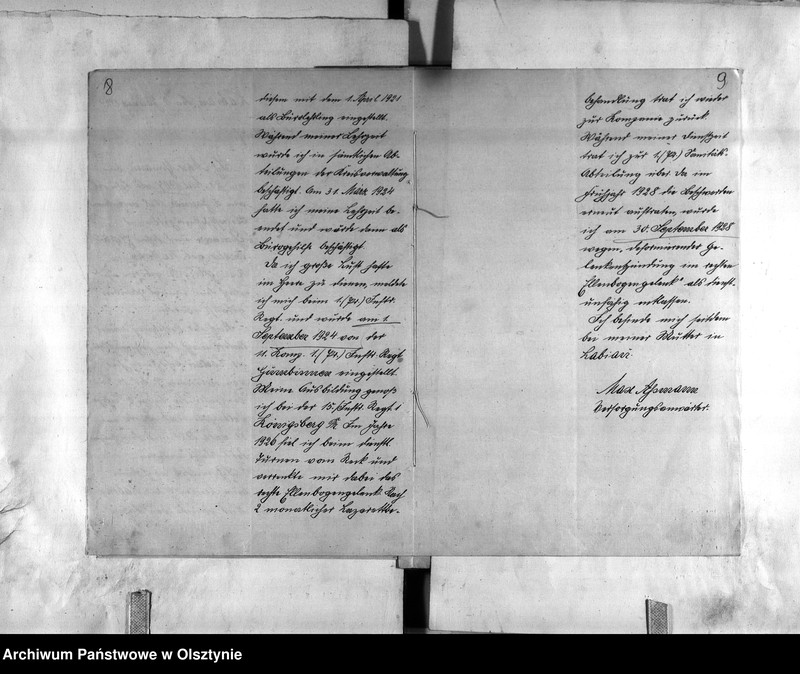 8
diesem mit dem 1. April 1921
als Bürolehling eingestellt.
Während meiner Lehrzeit
wurde ich in sämtlichen Ab-
teilungen der Kreisverwaltung
beschäftigt. Am 31. März 1924
hatte ich meine Lehrzeit be-
endet und wurde dann als
Bürogehilfe beschäftigt.
Da ich große Lust hatte
im Heere zu dienen, meldete
ich mich beim 1. (Pr.) Inftr.
Regt. und wurde am 1.
September 1924 von der
11. Komp. 1. (Pr.) Inftr. Regt.
Gumbinnen eingestellt.
Meine Ausbildung genoß
ich bei der 15. Inftr. Regt. 1
Königsberg Pr. Im Jahre
1926 fiel ich beim dienstl.
Turnen vom Reck und
verrenkte mir dabei das
rechte Ellenbogengelenk. Nach
2 monatlicher Lazarettbe-
9
behandlung trat ich wieder
zur Kompanie zurück.
Während meiner Dienstzeit
trat ich zur 1. (Pr.) Sanitäts-
Abteilung über. Da im
Frühjahr 1928 die Beschwerden
erneut auftraten, wurde
ich am 30. September 1928
wegen "deformierender Ge-
lenkentzündung im rechten
Ellenbogengelenk" als dienst-
unfähig entlassen.
Ich befinde mich seitdem
bei meiner Mutter in
Labiau.
Max Assmann
Versorgungsanwärter.
Archiwum Państwowe w Olsztynie